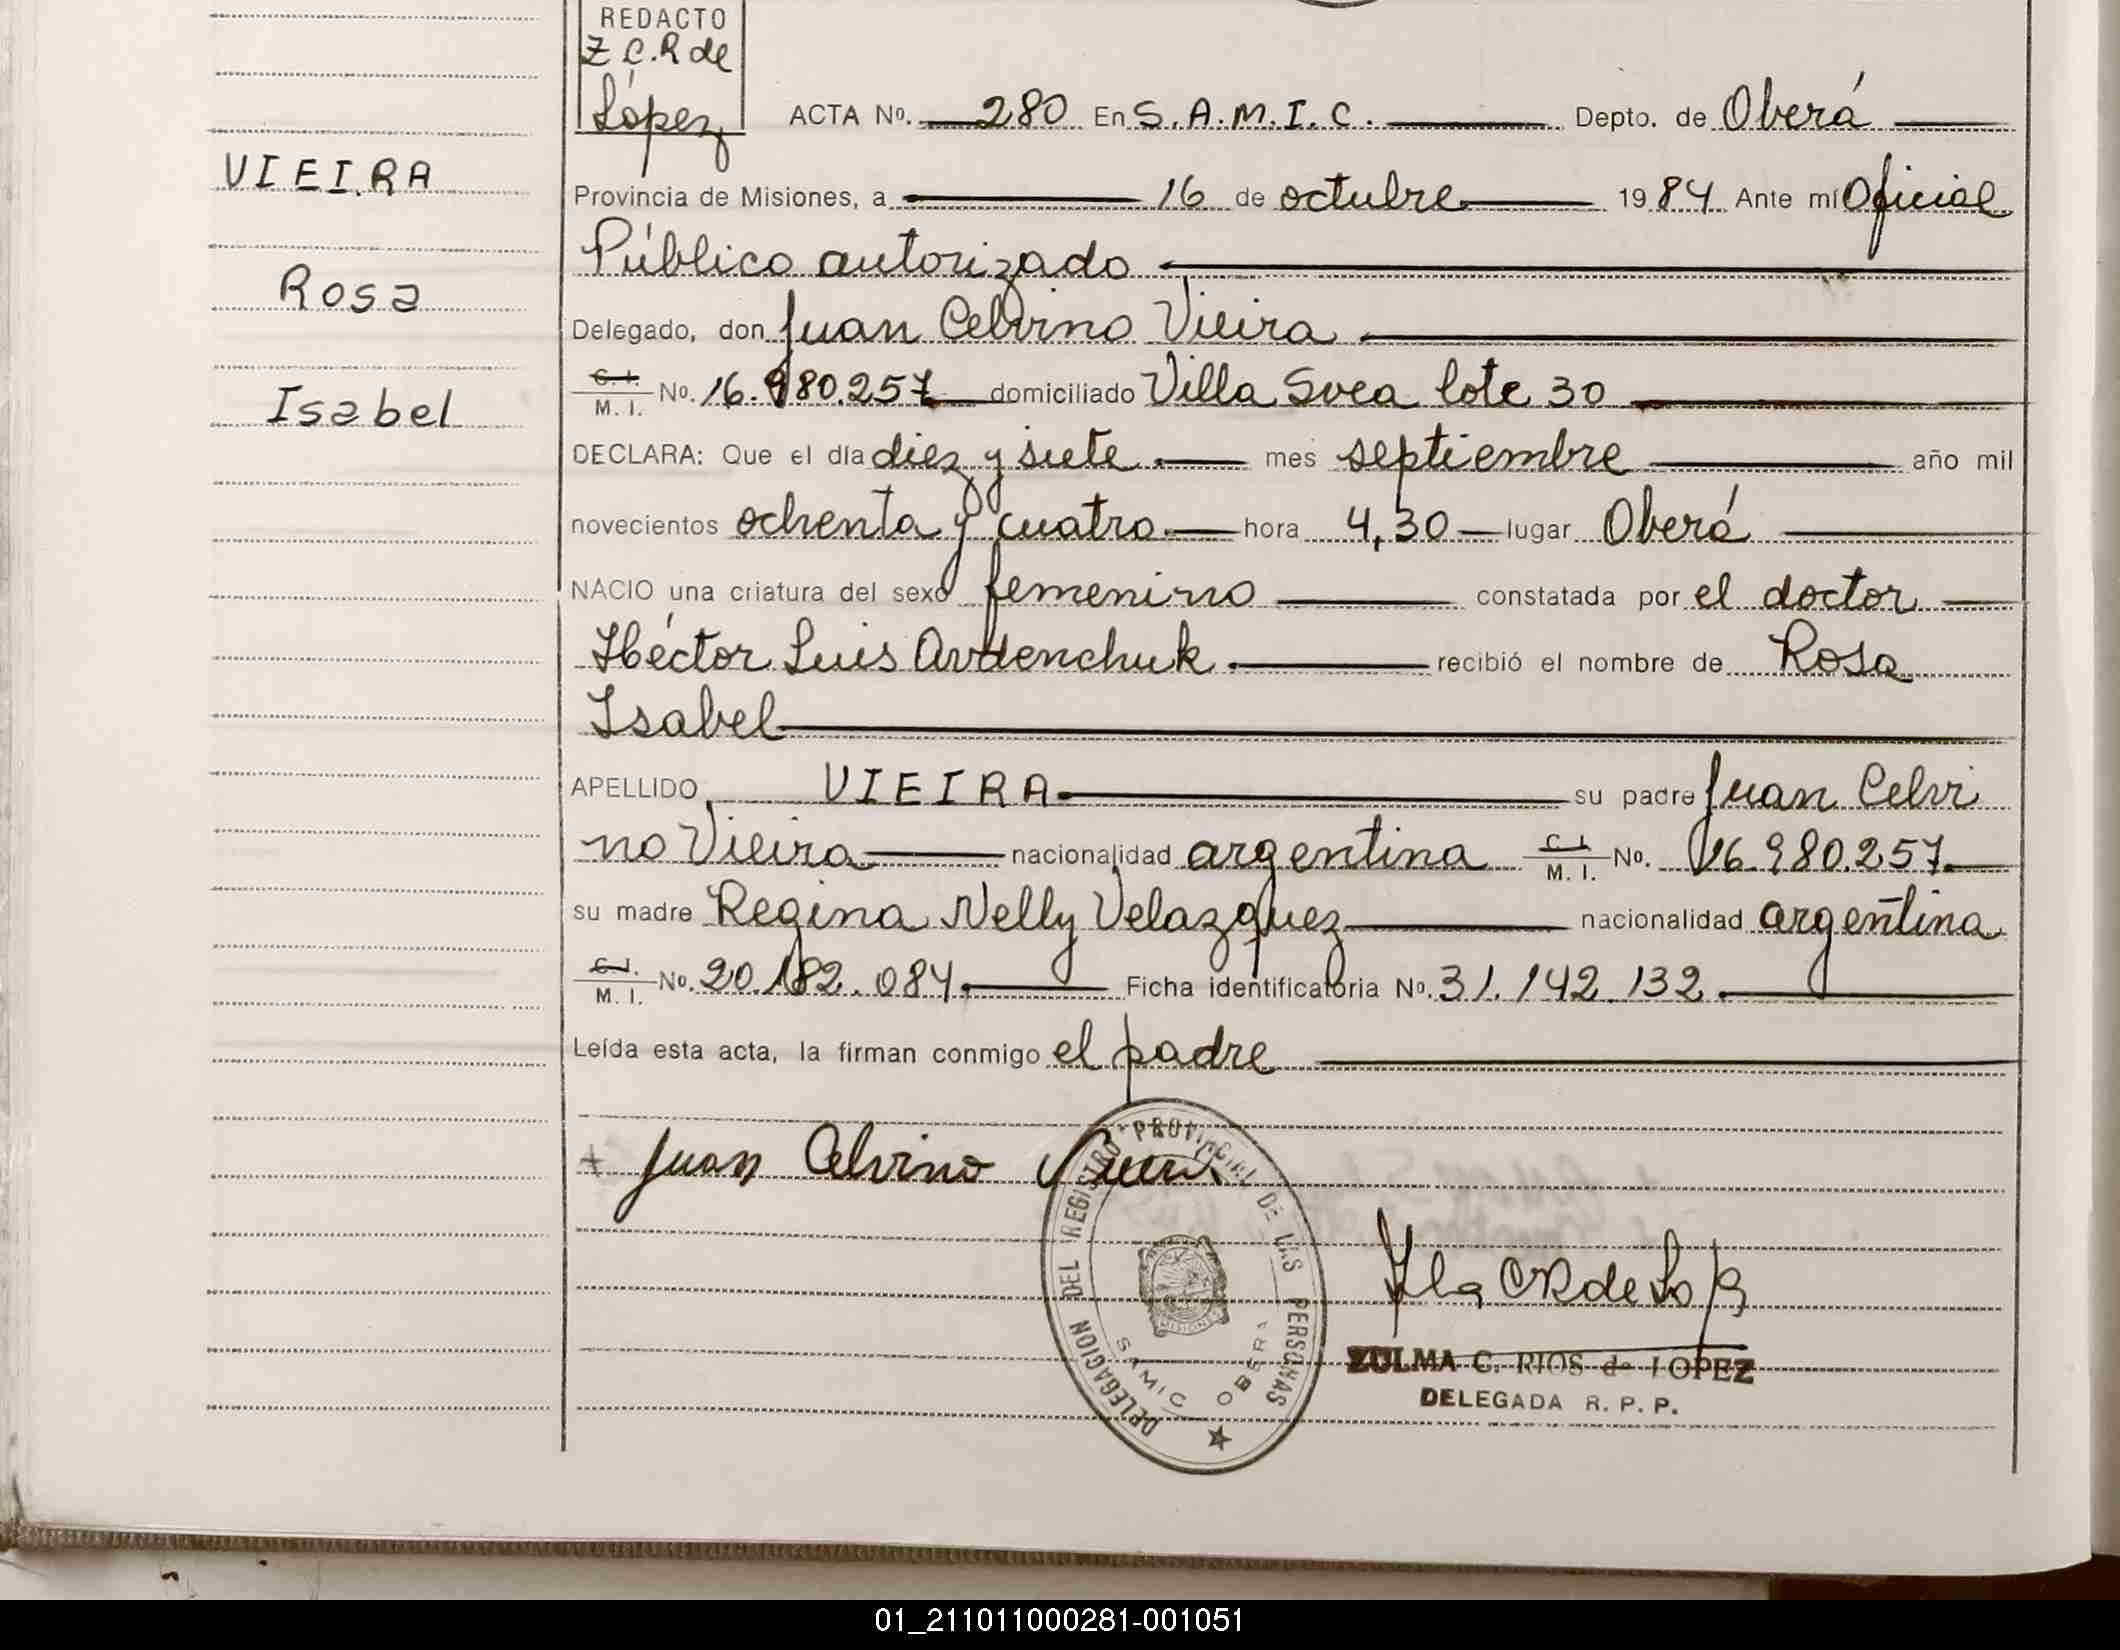 REDACTO
Z C.R de
López
ACTA No. 280 En S.A.M.I.C. Depto. de Oberá
VIEIRA
Provincia de Misiones, a 16 de octubre 1984 Ante mí Oficial
Público autorizado
Rosa
Delegado, don Juan Celvino Vieira
Isabel
C. I. M. I. No. 16.980.257 domiciliado Villa Svea lote 30
DECLARA: Que el día diez y siete mes septiembre año mil
novecientos ochenta y cuatro hora 4,30 lugar Oberá
NACIO una criatura del sexo femenino constatada por el doctor
Héctor Luis Avdenchuk recibió el nombre de Rosa
Isabel
APELLIDO VIEIRA su padre Juan Celvi
no Vieira nacionalidad argentina C. I. M. I. No. 16.980.257
su madre Regina Nelly Velazquez nacionalidad argentina
C. I. M. I. No. 20.182.084 Ficha identificatoria No. 31.142.132
Leída esta acta, la firman conmigo el padre
+ Juan Celvino Vieira
DELEGACION DEL REGISTRO PROVINCIAL DE LAS PERSONAS
MISIONES
SAMIC OBERA
ZULMA C. RIOS de LOPEZ
DELEGADA R. P. P.
01_211011000281-001051